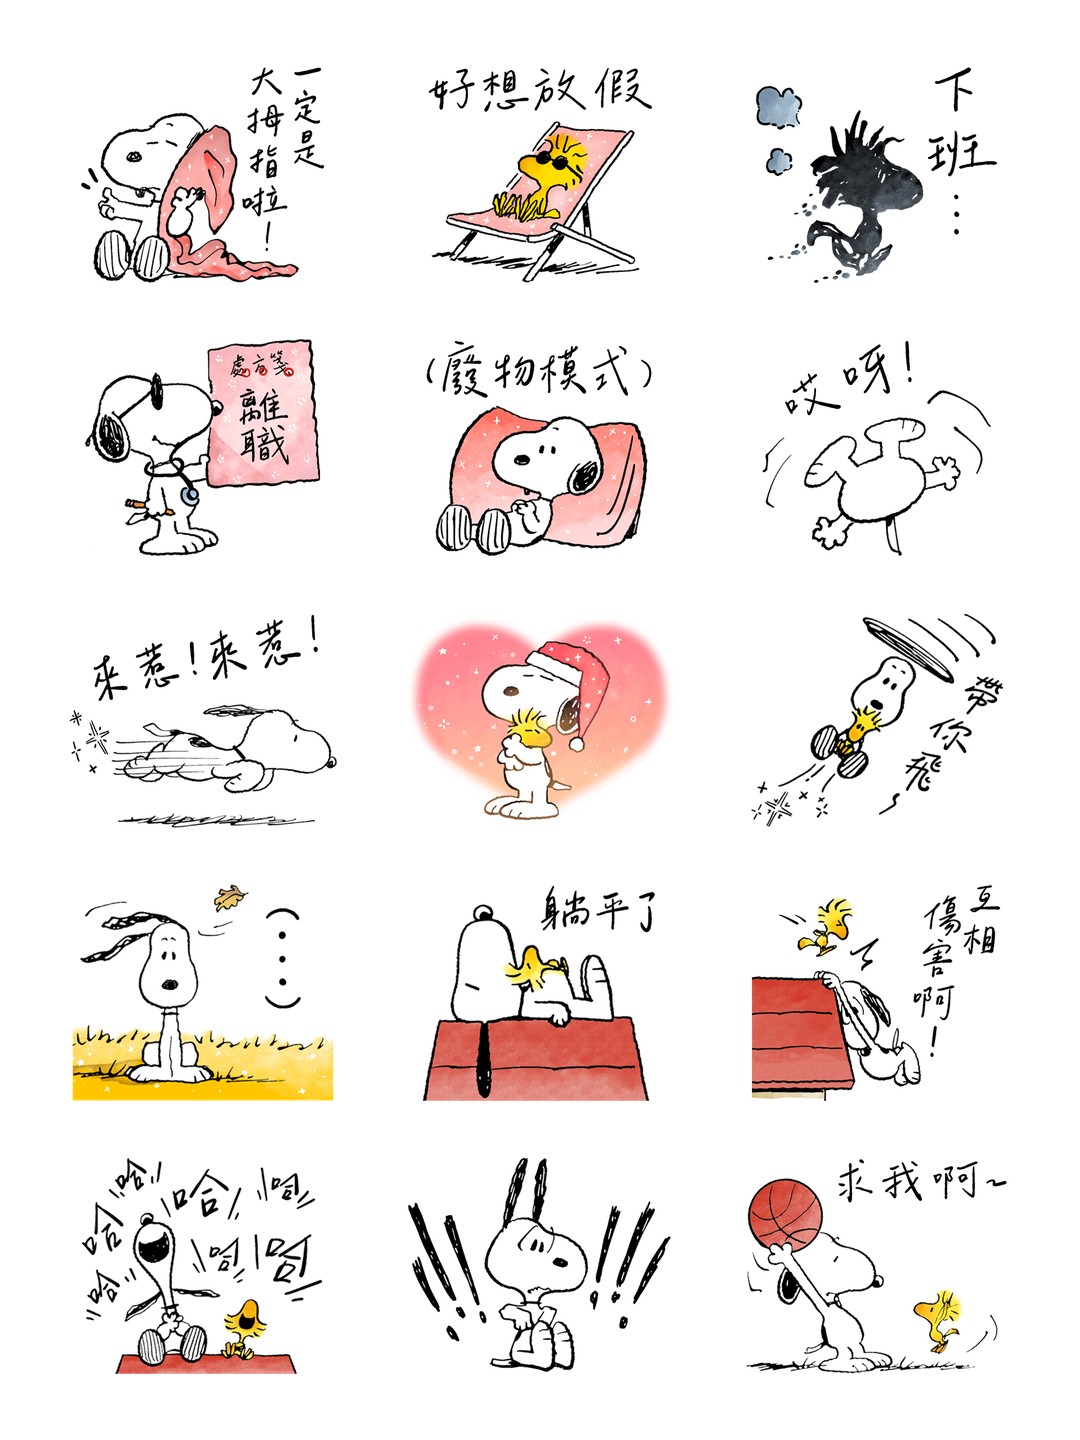 一定是
大拇指啦！
好想放假
下班…
處方箋
離職
（廢物模式）
哎呀！
來惹！來惹！
帶你飛~
（…）
躺平了
互相
傷害啊！
哈
哈
哈
哈
哈
哈
哈
!!! !!!
求我啊~